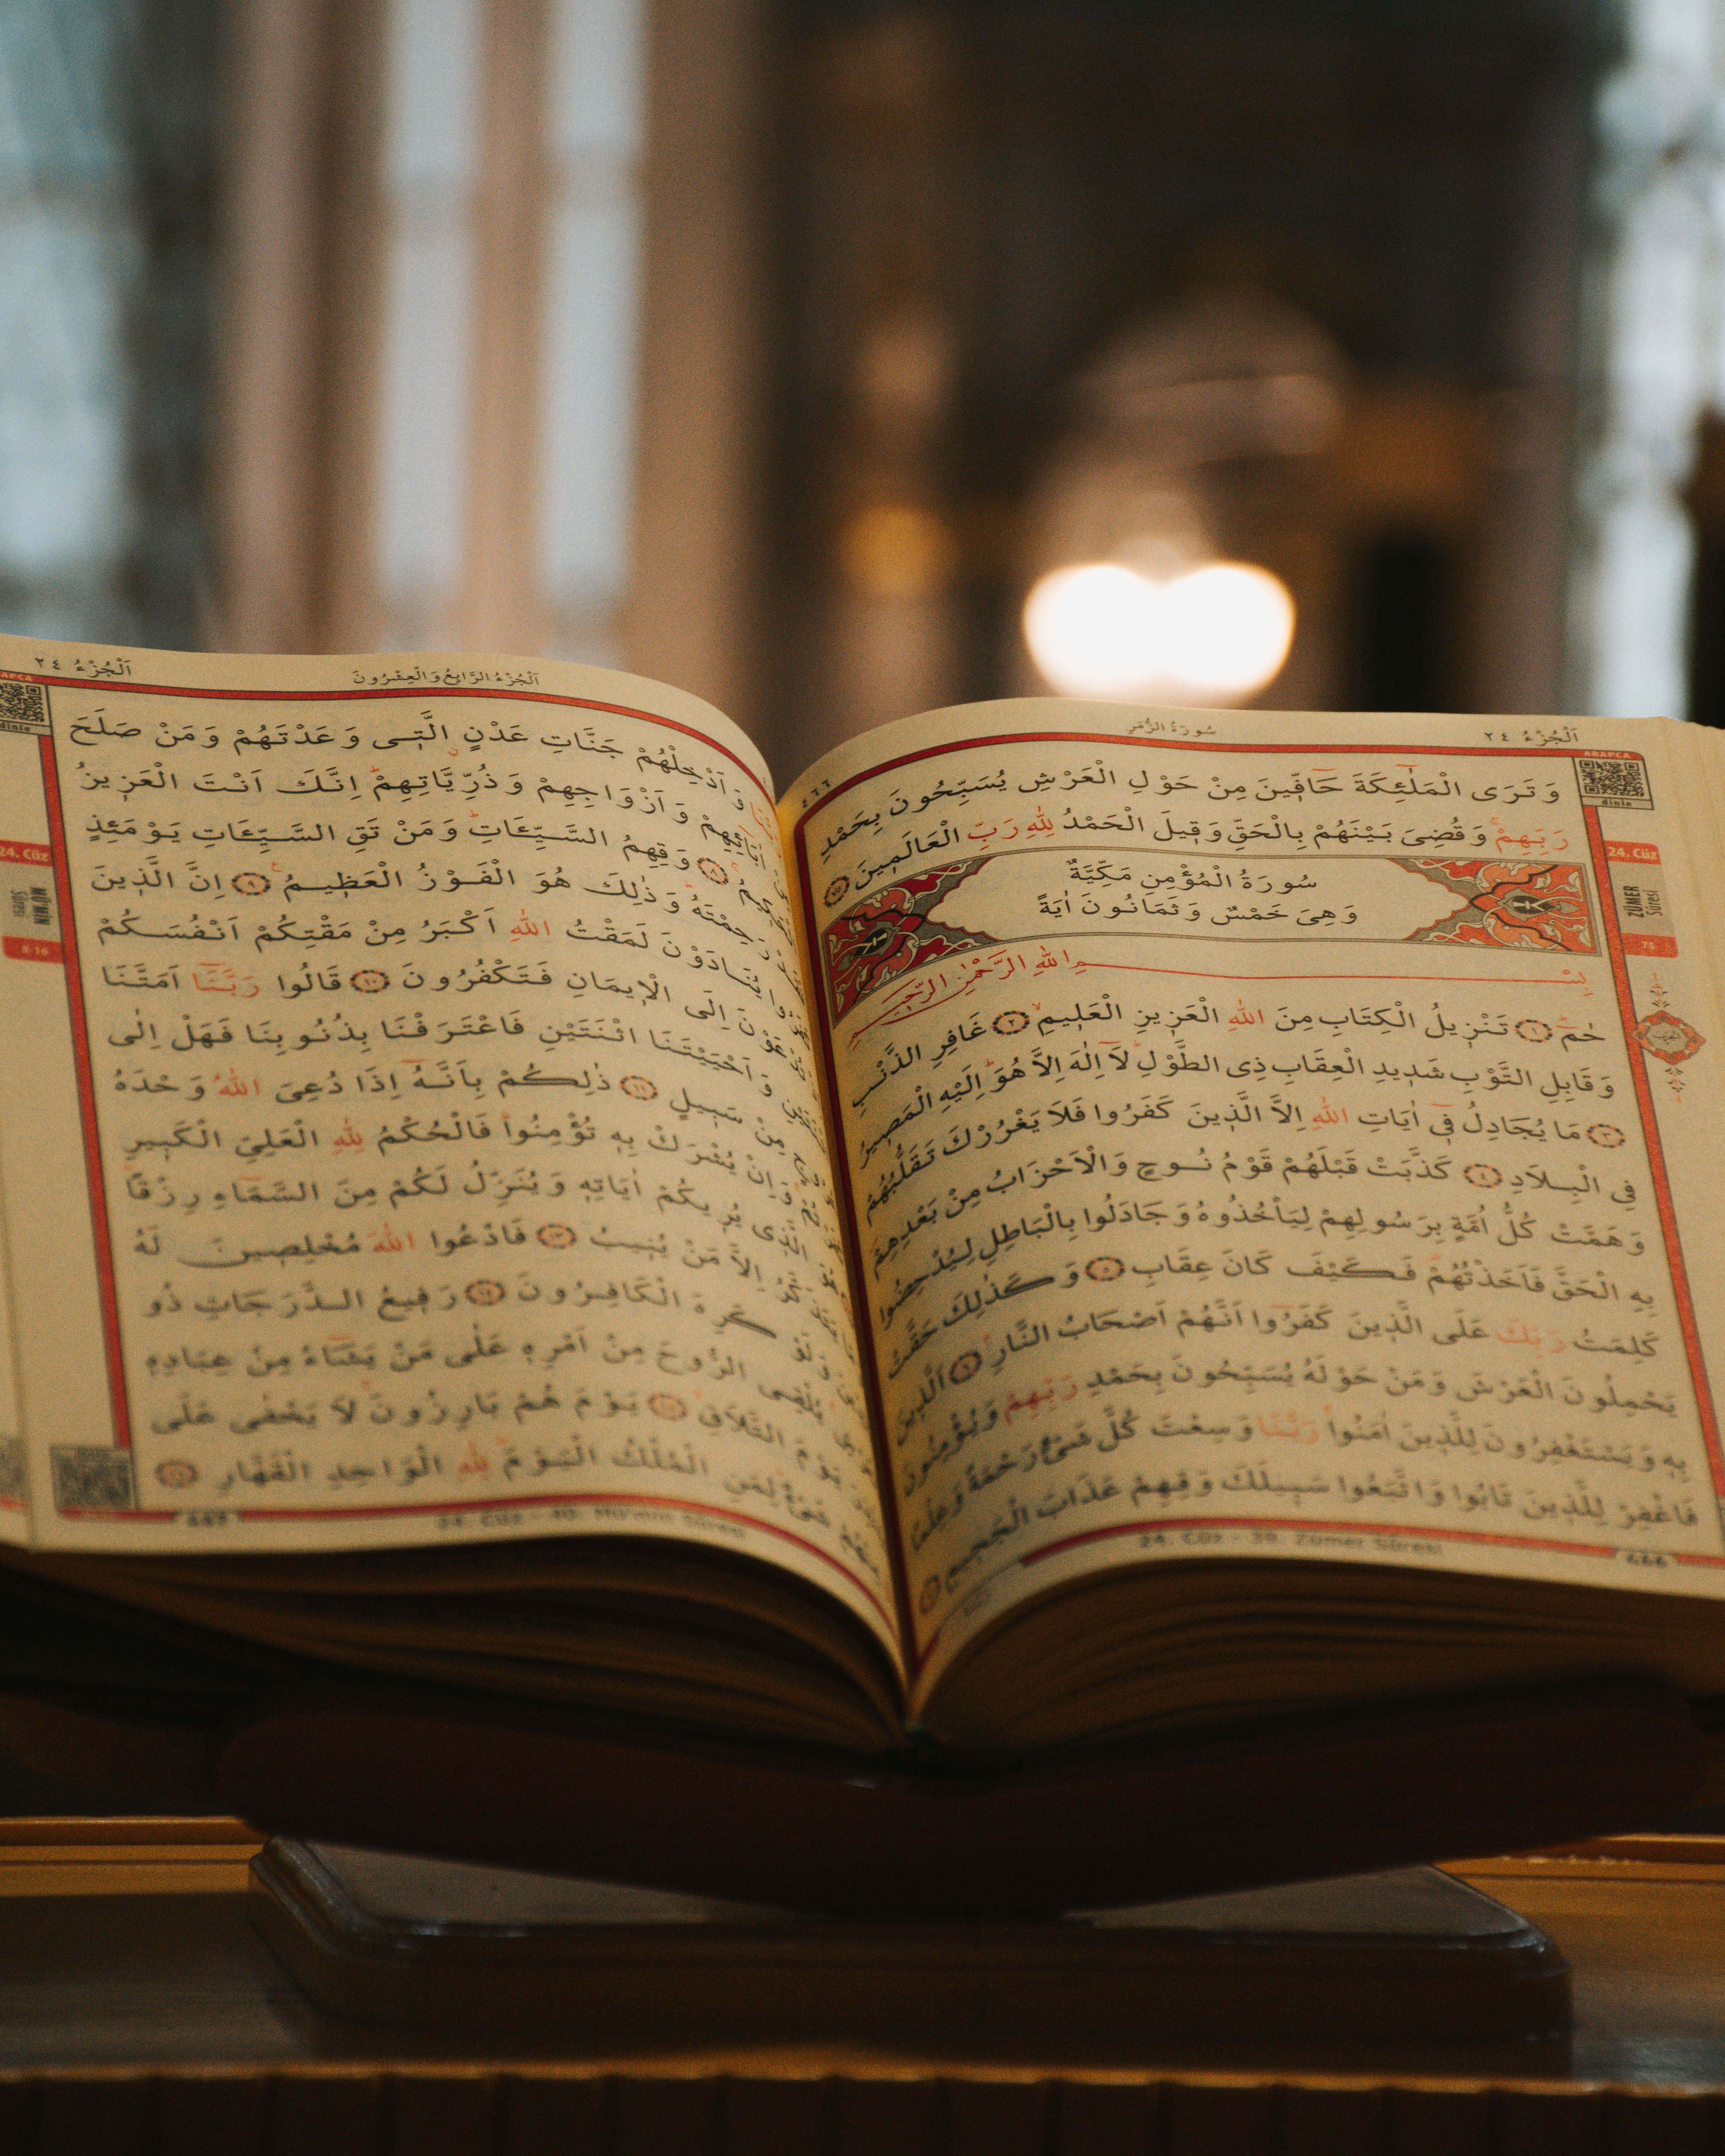 اَلْجُزْءُ ٢٤
سُورَةُ الزُّمَرِ
٤٦٦
وَتَرَى الْمَلٰٓئِكَةَ حَٓافّ۪ينَ مِنْ حَوْلِ الْعَرْشِ يُسَبِّحُونَ بِحَمْدِ
رَبِّهِمْۚ وَقُضِيَ بَيْنَهُمْ بِالْحَقِّ وَق۪يلَ الْحَمْدُ لِلّٰهِ رَبِّ الْعَالَم۪ينَ ﴿٧٥﴾
سُورَةُ الْمُؤْمِنِ مَكِّيَّةٌ
وَهِيَ خَمْسٌ وَثَمَانُونَ اٰيَةً
بِسْمِ اللّٰهِ الرَّحْمٰنِ الرَّح۪يمِ
حٰمٓ ﴿١﴾ تَنْز۪يلُ الْكِتَابِ مِنَ اللّٰهِ الْعَز۪يزِ الْعَل۪يمِۙ ﴿٢﴾ غَافِرِ الذَّنْبِ
وَقَابِلِ التَّوْبِ شَد۪يدِ الْعِقَابِ ذِي الطَّوْلِۜ لَٓا اِلٰهَ اِلَّا هُوَۜ اِلَيْهِ الْمَص۪يرُ
﴿٣﴾ مَا يُجَادِلُ ف۪ٓي اٰيَاتِ اللّٰهِ اِلَّا الَّذ۪ينَ كَفَرُوا فَلَا يَغْرُرْكَ تَقَلُّبُهُمْ
فِي الْبِلَادِ ﴿٤﴾ كَذَّبَتْ قَبْلَهُمْ قَوْمُ نُوحٍ وَالْاَحْزَابُ مِنْ بَعْدِهِمْۖ
وَهَمَّتْ كُلُّ اُمَّةٍ بِرَسُولِهِمْ لِيَأْخُذُوهُ وَجَادَلُوا بِالْبَاطِلِ لِيُدْحِضُوا
بِهِ الْحَقَّ فَاَخَذْتُهُمْ۠ فَكَيْفَ كَانَ عِقَابِ ﴿٥﴾ وَكَذٰلِكَ حَقَّتْ
كَلِمَتُ رَبِّكَ عَلَى الَّذ۪ينَ كَفَرُٓوا اَنَّهُمْ اَصْحَابُ النَّارِۢ ﴿٦﴾ اَلَّذ۪ينَ
يَحْمِلُونَ الْعَرْشَ وَمَنْ حَوْلَهُ يُسَبِّحُونَ بِحَمْدِ رَبِّهِمْ وَيُؤْمِنُونَ
بِه۪ وَيَسْتَغْفِرُونَ لِلَّذ۪ينَ اٰمَنُواۚ رَبَّنَا وَسِعْتَ كُلَّ شَيْءٍ رَحْمَةً وَعِلْمًا
فَاغْفِرْ لِلَّذ۪ينَ تَابُوا وَاتَّبَعُوا سَب۪يلَكَ وَقِهِمْ عَذَابَ الْجَح۪يمِ ﴿٧﴾
24. Cüz - 39. Zümer Sûresi
466
ARAPÇA
dinle
24. Cüz
ZÜMER
Sûresi
75
اَلْجُزْءُ الرَّابِعُ وَالْعِشْرُونَ
اَلْجُزْءُ ٢٤
وَاَدْخِلْهُمْ جَنَّاتِ عَدْنٍ الَّت۪ي وَعَدْتَهُمْ وَمَنْ صَلَحَ
وَاَزْوَاجِهِمْ وَذُرِّيَّاتِهِمْۜ اِنَّكَ اَنْتَ الْعَز۪يزُ
﴿٨﴾ وَقِهِمُ السَّيِّـَٔاتِۜ وَمَنْ تَقِ السَّيِّـَٔاتِ يَوْمَئِذٍ
وَذٰلِكَ هُوَ الْفَوْزُ الْعَظ۪يمُ۟ ﴿٩﴾ اِنَّ الَّذ۪ينَ
يُنَادَوْنَ لَمَقْتُ اللّٰهِ اَكْبَرُ مِنْ مَقْتِكُمْ اَنْفُسَكُمْ
اِلَى الْا۪يمَانِ فَتَكْفُرُونَ ﴿١٠﴾ قَالُوا رَبَّنَٓا اَمَتَّنَا
وَاَحْيَيْتَنَا اثْنَتَيْنِ فَاعْتَرَفْنَا بِذُنُوبِنَا فَهَلْ اِلٰى
مِنْ سَب۪يلٍ ﴿١١﴾ ذٰلِكُمْ بِاَنَّهُٓ اِذَا دُعِيَ اللّٰهُ وَحْدَهُ
وَاِنْ يُشْرَكْ بِه۪ تُؤْمِنُواۜ فَالْحُكْمُ لِلّٰهِ الْعَلِيِّ الْكَب۪يرِ
يُر۪يكُمْ اٰيَاتِه۪ وَيُنَزِّلُ لَكُمْ مِنَ السَّمَٓاءِ رِزْقًاۜ
اِلَّا مَنْ يُن۪يبُ ﴿١٣﴾ فَادْعُوا اللّٰهَ مُخْلِص۪ينَ لَهُ
كَرِهَ الْكَافِرُونَ ﴿١٤﴾ رَف۪يعُ الدَّرَجَاتِ ذُو
الرُّوحَ مِنْ اَمْرِه۪ عَلٰى مَنْ يَشَٓاءُ مِنْ عِبَادِه۪
يَوْمَ التَّلَاقِۙ ﴿١٥﴾ يَوْمَ هُمْ بَارِزُونَۚ لَا يَخْفٰى عَلَى
لِمَنِ الْمُلْكُ الْيَوْمَۜ لِلّٰهِ الْوَاحِدِ الْقَهَّارِ ﴿١٦﴾
24. Cüz - 40. Mü'min Sûresi
dinle
24. Cüz
MÜ'MİN
Sûresi
8-16